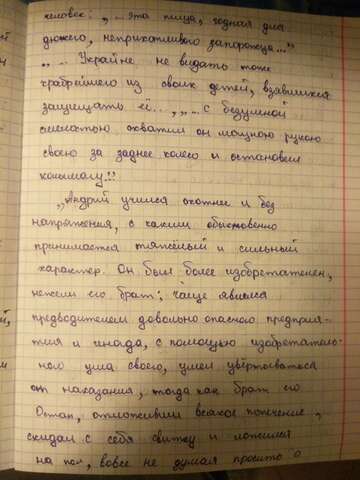 человек: „...эта птица, годная для
дюжего, неприхотливого запорожца..."
„... Украйне не видать тоже
храбрейшего из своих детей, взявшихся
защищать её...", „...с безумной
смелостью схватил он мощною рукою
своею за заднее колесо и остановил
колымагу!"
„Андрий учился охотнее и без
напряжения, с каким обыкновенно
принимается тяжёлый и сильный
характер. Он был более изобретателен,
нежели его брат; чаще являлся
предводителем довольно опасного предприя-
тия и иногда, с помощью изобретатель-
ного ума своего, умел увёртываться
от наказания, тогда как брат его
Остап, отложивши всякое попечение,
скидал с себя свитку и ложился
на пол, вовсе не думая просить о